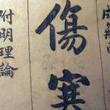 傷寒
附明理論